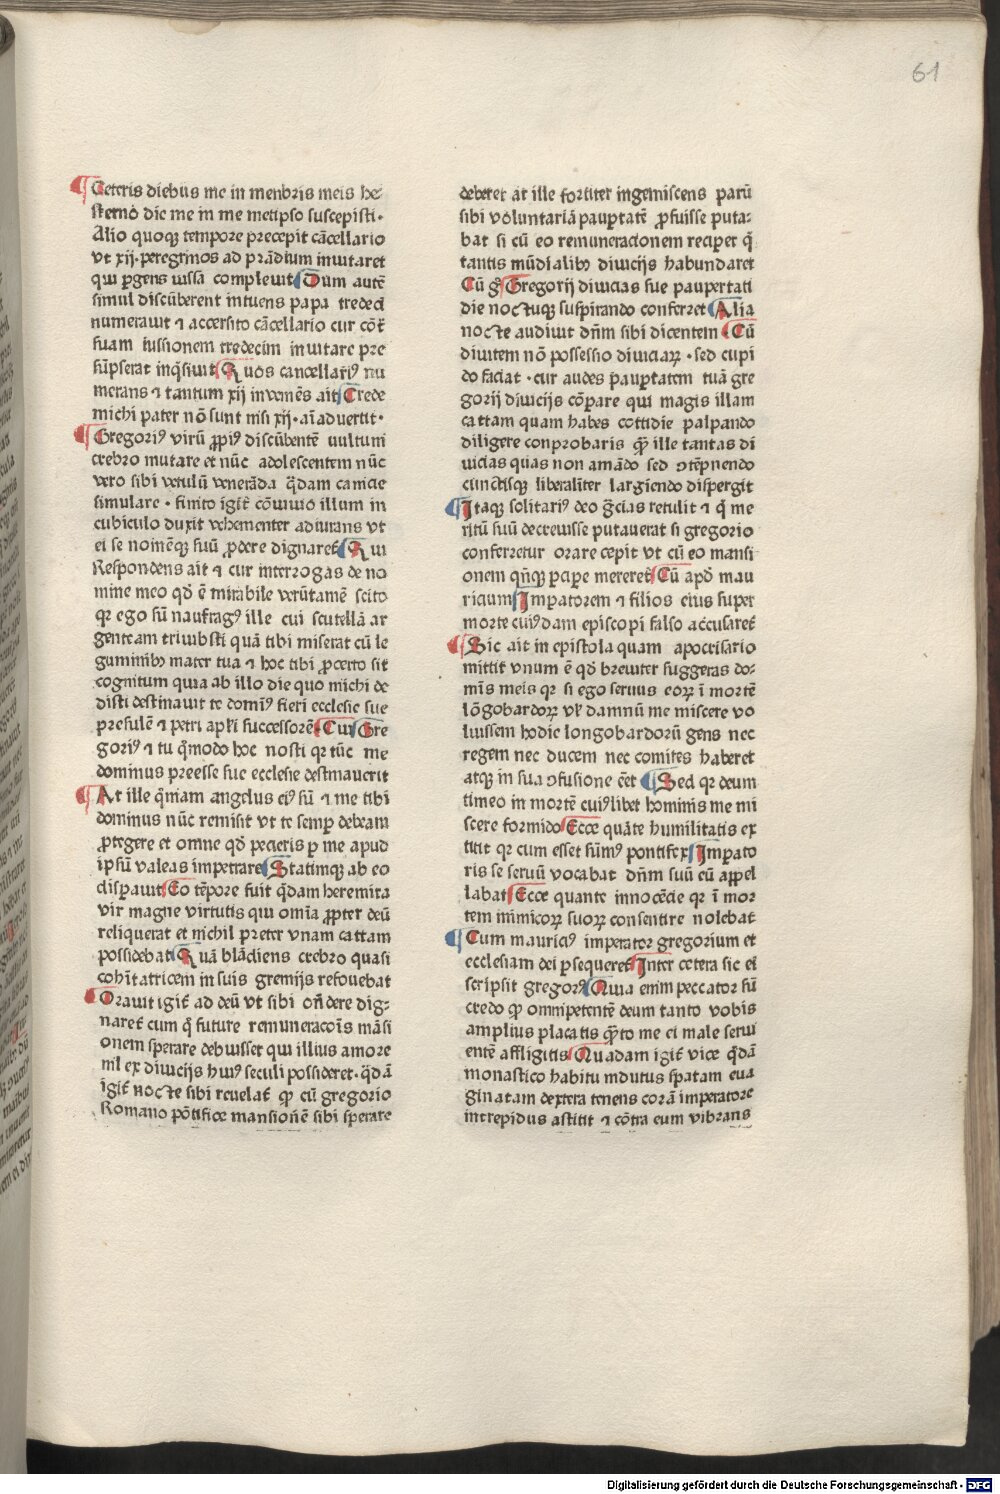 61
Ceteris diebus me in menbris meis he⸗
sterno die me in me metipso suscepisti·
Alio quoqꝫ tempore precepit cācellario
vt xij·peregrinos ad prādium inuitaret
qui ꝑgens iussa compleuit Dum autē
simul discūberent intuens papa tredecī
numerauit ⁊ accersito cācellario cur cōt̄
suam iussionem tredecim inuitare pre
sūpserat inq̄siuit Quos cancellariꝰ nu
merans ⁊ tantum xij inuenēs ait Crede
michi pater nō sunt nisi xij·aīaduertit·
Gregoriꝰ virū ꝓpiꝰ discūbentē uultum
crebro mutare et nūc adolescentem nūc
vero sibi vetulū venerāda q̄dam canicie
simulare·finito igit̄ cōuiuio illum in
cubiculo duxit vehementer adiurans vt
ei se nomēqꝫ suū ꝓdere dignaret̄ Qui
Respondens ait ⁊ cur interrogas de no
mine meo qd̄ ē mirabile verūtamē scito
qꝛ ego sū naufragꝰ ille cui scutellā ar
genteam tribuisti quā tibi miserat cū le
guminibꝫ mater tua ⁊ hoc tibi ꝓcerto sit
cognitum quia ab illo die quo michi de
disti destinauit te dominꝰ fieri ecclesie sue
presulē ⁊ petri apl̄i successorē Cui Gre
goriꝰ ⁊ tu q̄modo hoc nosti qꝛ tūc me
dominus preesse sue ecclesie destinauerit
At ille q̄niam angelus eiꝰ sū ⁊ me tibi
dominus nūc remisit vt te semꝑ debeam
ꝓtegere et omne qd̄ pecieris ꝑ me apud
ipsū valeas impetrare Statimqꝫ ab eo
disparuit Eo tēpore fuit q̄dam heremita
vir magne virtutis qui omīa ꝓpter deū
reliquerat et nichil preter vnam cattam
possidebat Quā blādiens crebro quasi
cohītatricem in suis gremijs refouebat
Orauit igit̄ ad deū vt sibi oñdere dig⸗
naret̄ cum q̄ future remuneracōis māsi
onem sperare debuisset qui illius amore
nīl ex diuicijs huiꝰ seculi possideret·q̄dā
igit̄ nocte sibi reuelat̄ ꝙ cū gregorio
Romano pōtifice mansionē sibi sperare
deberet at ille fortiter ingemiscens parū
sibi voluntariā pauꝑtatē ꝓfuisse puta⸗
bat si cū eo remuneracionem reciper q̄
tantis mūdialibꝫ diuicijs habundaret
Cū gͦ Gregorij diuicias sue paupertati
die noctuqꝫ suspirando conferret Alia
nocte audiuit dn̄m sibi dicentem Cū
diuitem nō possessio diuiciaꝝ·sed cupi
do faciat·cur audes p̄auꝑtatem tuā gre
gorij diuicijs cōpare qui magis illam
cattam quam habes cottidie palpando
diligere conprobaris q̄ ille tantas di
uicias quas non amādo sed ꝯtēpnendo
cunctisqꝫ liberaliter largiendo dispergit
Itaqꝫ solitariꝰ deo gr̄cias retulit ⁊ q̄ me
ritū suū decreuisse putauerat si gregorio
conferretur orare cepit vt cū eo mansi
onem qn̄qꝫ ꝑcipe mereret̄ Cū apd̄ mau
ricium Imꝑatorem ⁊ filios eius super
morte cuiꝰdam episcopi falso accusaret̄
Sic ait in epistola quam apocrisario
mittit vnum ē qd̄ breuiter suggeras do⸗
mīs meis qꝛ si ego seruus eoꝝ ī mortē
lōgobardoꝝ vl̄ damnū me miscere vo
luissem hodie longobardorū gens nec
regem nec ducem nec comites haberet
atqꝫ in sua ꝯfusione eēt Sed qꝛ deum
timeo in mortē cuiꝰlibet hominis me mi
scere formido Ecce quāte humilitatis ex
titit qꝛ cum esset sūmꝰ pontifex Imꝑato
ris se seruū vocabat dn̄m suū eū appel
labat Ecce quante innocēcie qꝛ ī mor
tem inimicoꝝ suoꝝ consentire nolebat
Cum mauriciꝰ imperator gregorium et
ecclesiam dei ꝑsequeret̄ Inter cetera sic ei
scripsit gregorꝰ Quia enim peccator sū
credo ꝙ omnipotentē deum tanto vobis
amplius placatis q̄to me ei male serui
entē affligitis Quadam igit̄ vice q̄dā
monastico habitu indutus spatam eua
ginatam dextera tenens corā imperatore
intrepidus astitit ⁊ cōtra eum vibrans
Digitalisierung gefördert durch die Deutsche Forschungsgemeinschaft - DFG